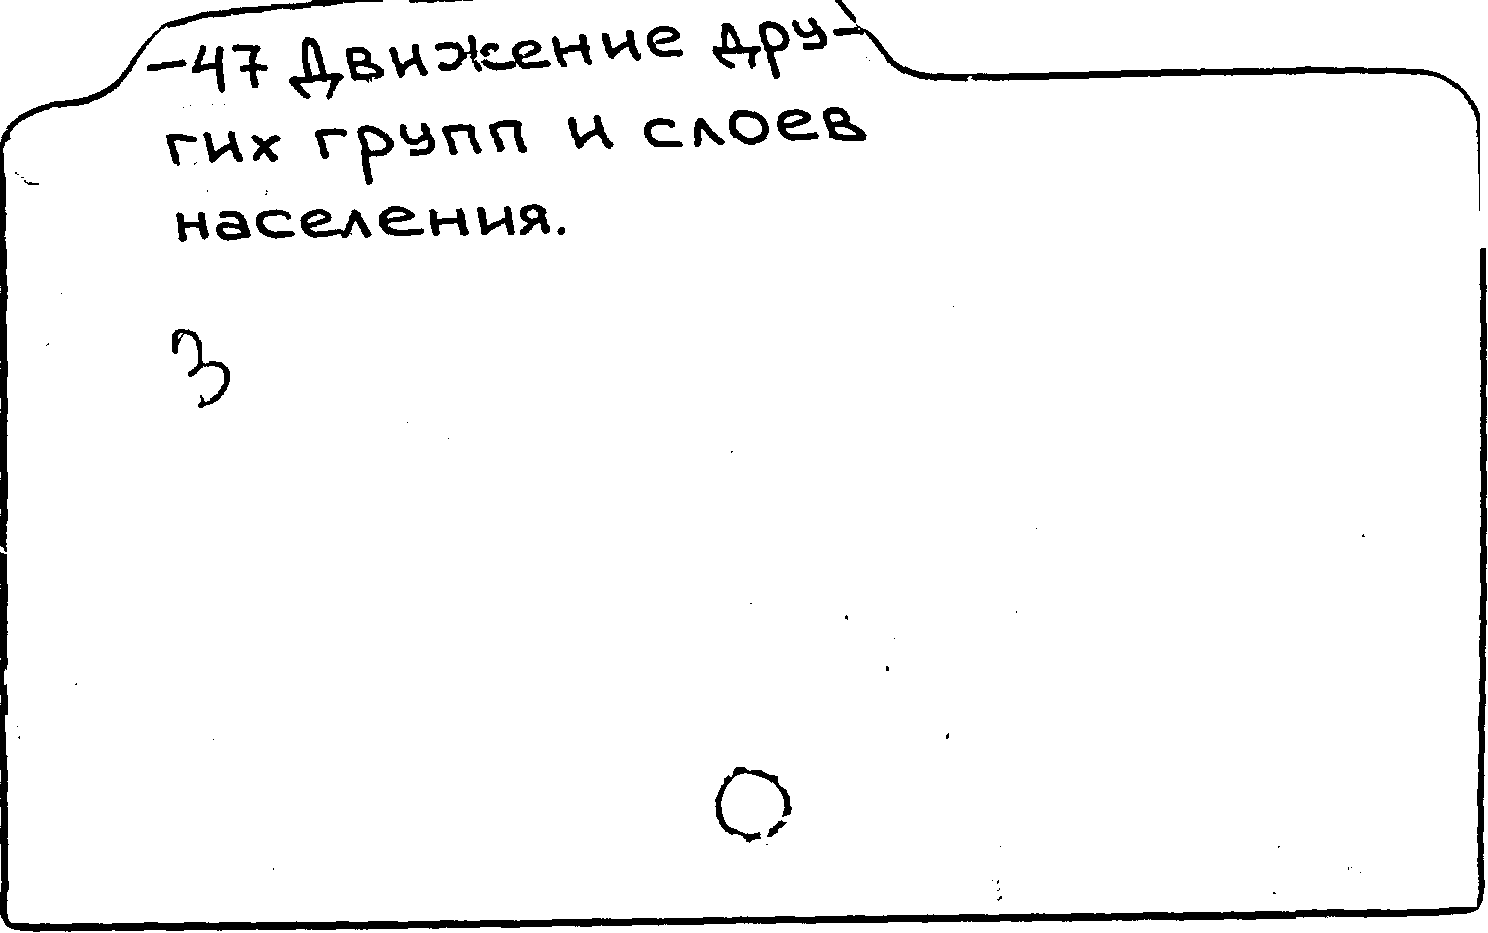 -47 Движение дру-
гих групп и слоев
населения.
З